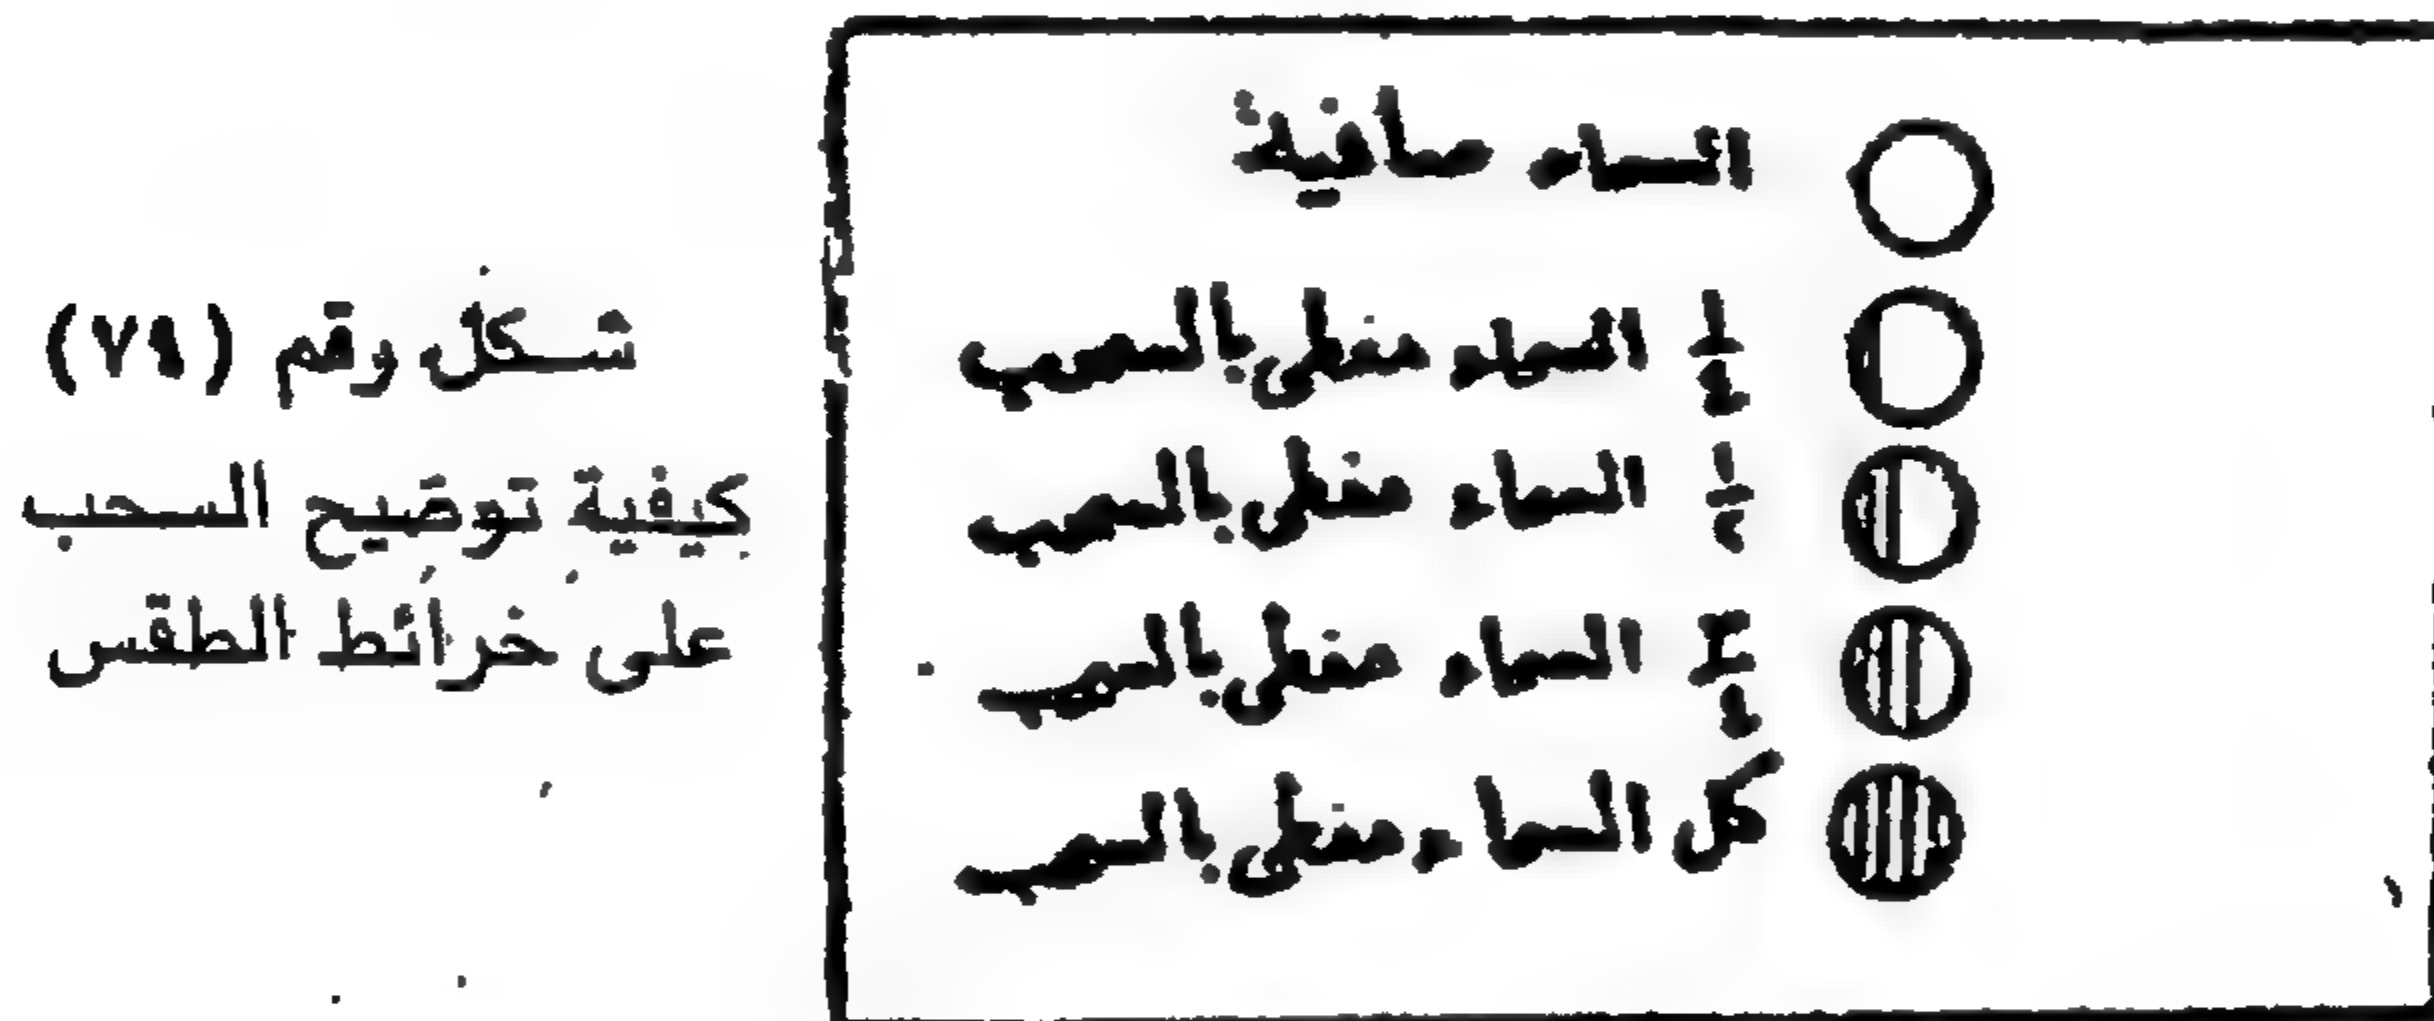 السماء صافية
١/٤ السماء مغطى بالسحب
١/٢ السماء مغطى بالسحب
٣/٤ السماء مغطى بالسحب
كل السماء مغطى بالسحب
شكل رقم (٧٩)
كيفية توضيح السحب
على خرائط الطقس